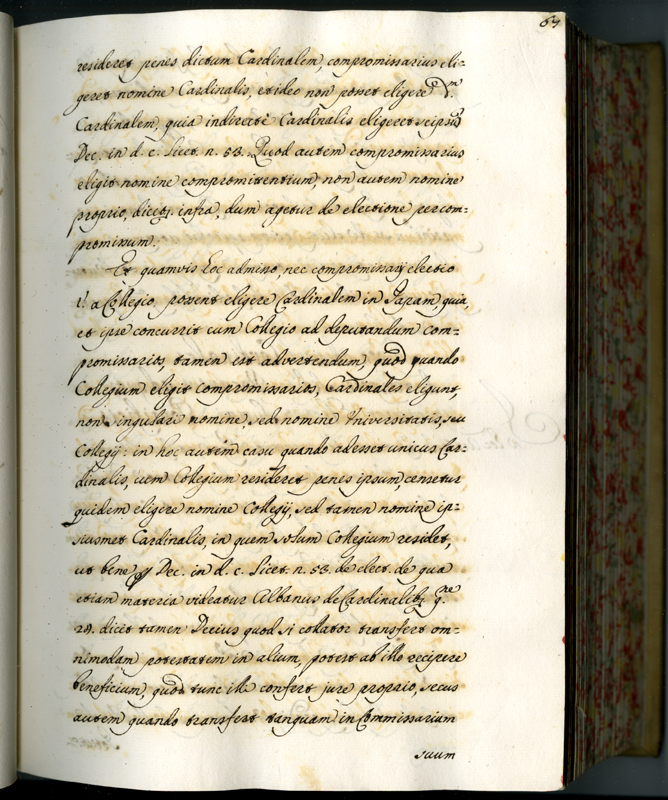 67
resideret penes dictum Cardinalem, compromissarius eli-
geret nomine Cardinalis, et ideo non posset eligere
Cardinalem, quia indirectè Cardinalis eligeret seipsũ
Dec. in d. c. Licet. n. 53. Quod autem compromissarius
eligit nomine compromittentium, non autem nomine
proprio, dicetr. infra, dum agetur de electione per com-
promissum.
Et quamvis hoc admisso, nec compromissarij electio
à Collegio, possent eligere Cardinalem in Papam quia,
et ipse concurrit cum Collegio ad deputandum com-
promissarios, tamen est advertendum, quod quando
Collegium eligit compromissarios, Cardinales eligunt,
non singulari nomine sed nomine Vniversitatis, seu
Collegij: in hoc autem casu quando adesset unicus Car-
dinalis, cum Collegium resideret penes ipsum, censetur
quidem eligere nomine Collegij, sed tamen nomine ip-
siusmet Cardinalis, in quem solum Collegium residet,
ut bene Dec. in d. c. Licet. n. 53. de elect. de qua
etiam materia videatur Albanus de Cardinalibz. q.ne
28. dicit tamen Decius quod si collator transfert om-
nimodam potestatem in alium, potest ab illo recipere
beneficium, quod tunc ille confert jure proprio, secus
autem quando transfert tanquam in Commissarium
suum